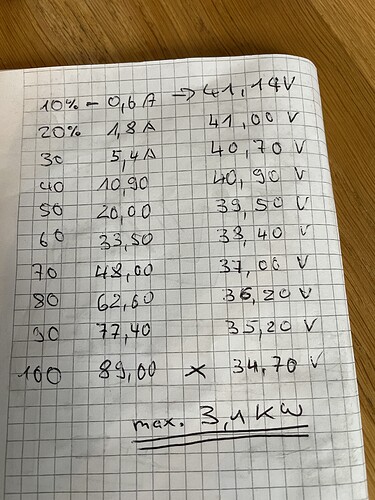 10% – 0,6 A → 41,14 V
20% 1,8 A 41,00 V
30 5,4 A 40,70 V
40 10,90 40,90 V
50 20,00 39,50 V
60 33,50 38,40 V
70 48,00 37,00 V
80 62,60 36,20 V
90 77,40 35,20 V
100 89,00 x 34,70 V
max. 3,1 KW